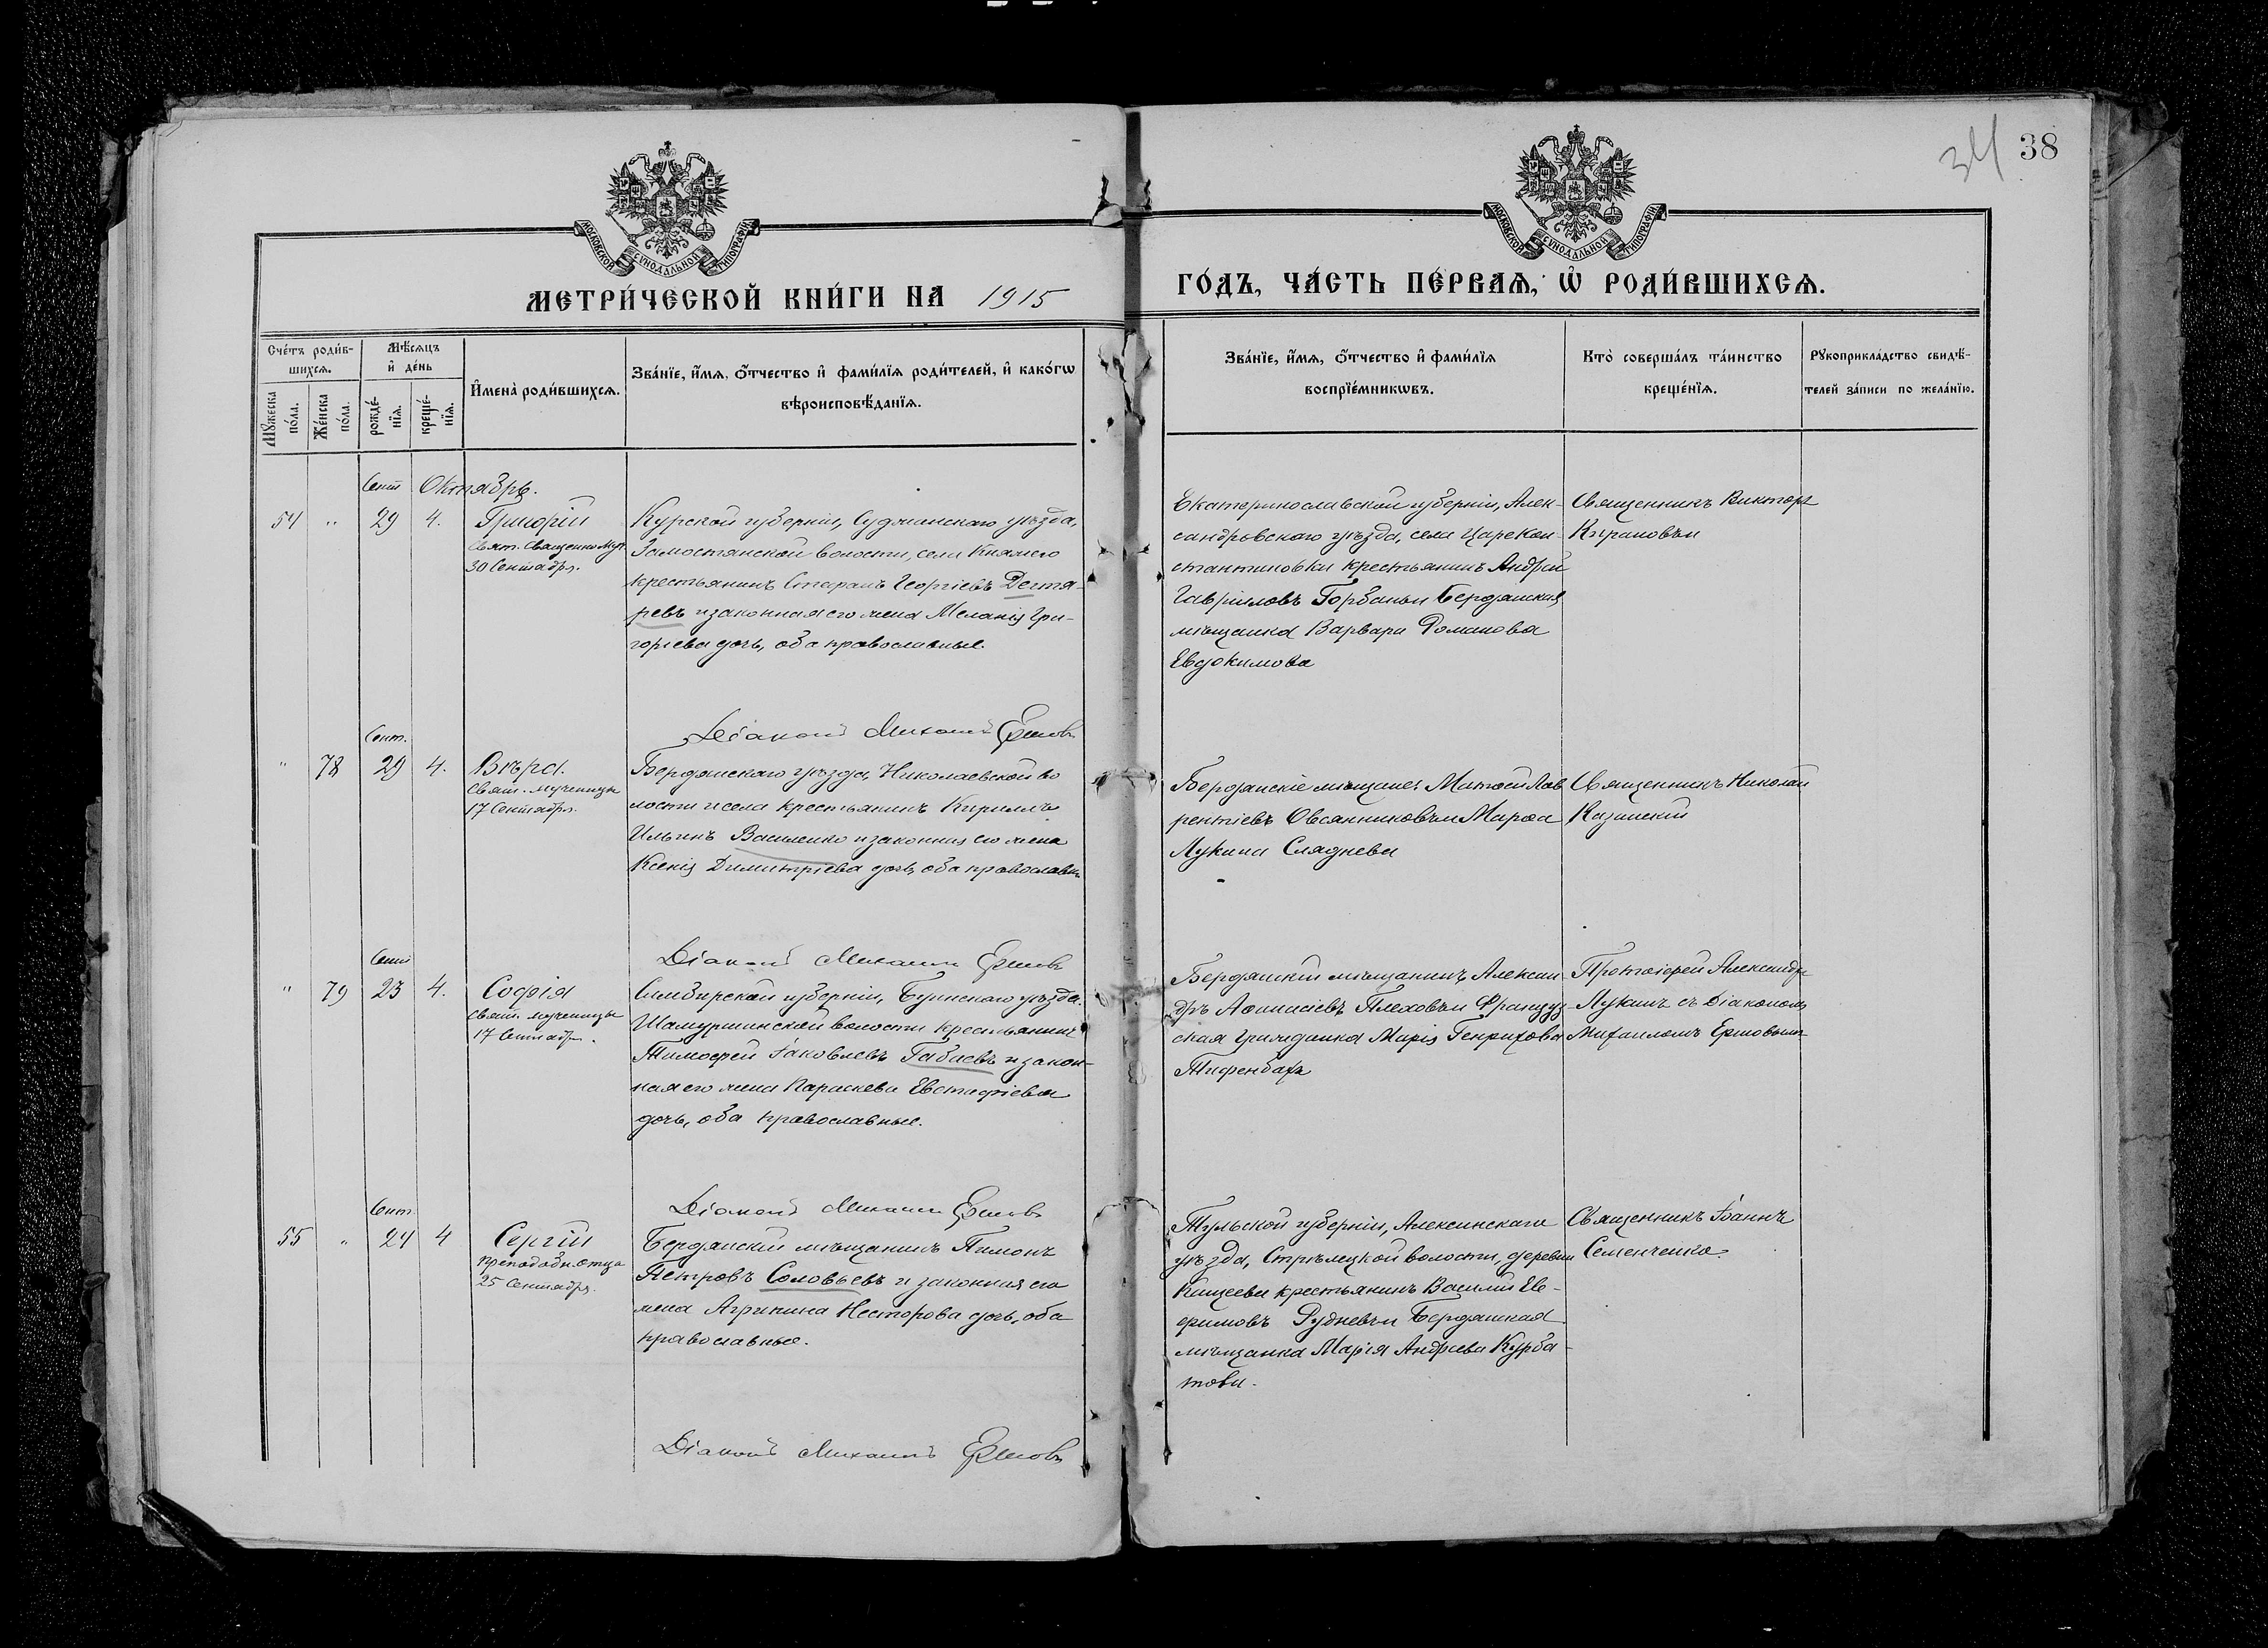 38
34
МОСКОВСКОЙ СѴНОДАЛЬНОЙ ТИПОГРАФІИ
МОСКОВСКОЙ СѴНОДАЛЬНОЙ ТИПОГРАФІИ
МЕТРИ́ЧЕСКОЙ КНИ́ГИ НА 1915
ГО́ДЪ, ЧА́СТЬ ПЕ́РВАѦ, Ѡ҆ РОДИ́ВШИХСѦ.
Сче́тъ роди́в-
шихсѧ.
Мꙋ́жеска
по́ла.
Же́нска
по́ла.
Мѣ́сѧцъ
и҆ де́нь
рожде́-
нїѧ.
креще́-
нїѧ.
И҆мена̀ роди́вшихсѧ.
Зва́нїе, и҆́мѧ, ѻ҆́тчество и҆ фами́лїѧ роди́телей, и҆ како́гѡ
вѣроисповѣ́данїѧ.
Зва́нїе, и҆́мѧ, ѻ҆́тчество и҆ фами́лїѧ
воспрїе́мникѡвъ.
Кто̀ соверша́лъ та́инство
креще́нїѧ.
Рꙋкоприкла́дство свидѣ́-
телей за́писи по жела́нїю.
Сент Октябрь.
54 " 29 4. Григорій
Свят. Священно Муч.
30 Сентября.
Курской губерніи, Суджанскаго уѣзда,
Замостянской волости, села
крестьянинъ Георгіевъ Дегтя-
ревъ и законная его жена Меланія Гри-
горіева дочь, оба православные.
Екатеринославской губерніи, Алек-
сандровскаго уѣзда, села Царекон-
стантиновки крестьянинъ Андрей
Гавріиловъ Горбань и Бердянская
мѣщанка Варвара Романова
Евдокимова
Священникъ Викторъ
Кирановъ
Діаконъ Михаилъ Ершовъ
Сент.
" 78 29 4. Вѣра.
Свят. мученицы
17 Сентября.
Бердянскаго уѣзда, Николаевской во
лости и села крестьянинъ Кириллъ
Ильинъ Василенко и законная его жена
Ксенія Димитріева дочь, оба православн
Бердянскіе мѣщане: Матѳей Лав
рентіевъ Овсянниковъ и Марѳа
Лукина Сляднева
Священникъ Николай
Казанскій
Діаконъ Михаилъ Ершовъ
Сент
" 79 23 4. Софія
Свят. мученицы
17 Сентябр.
Симбирской губерніи, Буинскаго уѣзда.
Шамуршинской волости крестьянинъ
Тимоѳей Іаковлевъ Габаевъ и закон-
ная его жена Параскева Евстафіева
дочь, оба православные.
Бердянскій мѣщанинъ Алексан-
дръ Аѳанасіевъ Плеховъ и Француз-
ская гражданка Марія Генрихова
Тифенбахъ
Протоіерей Александръ
Лукинъ съ Діакономъ
Михаиломъ Ершовымъ
Діаконъ Михаилъ Ершовъ
Сент
55 " 24 4 Сергій
преподобн. отца
25 Сентября.
Бердянскій мѣщанинъ Пимонъ
Петровъ Соловьевъ и законная его
жена Агрипина Несторова дочь, оба
православные.
Тульской губерніи, Алексинскаго
уѣзда, Стрѣлецкой волости, деревни
Кащеевы крестьянинъ Василій Ев-
фимовъ Рудневъ и Бердянская
мѣщанка Марія Андреева Курба-
това.
Священникъ Іоаннъ
Семенченко
Діаконъ Михаилъ Ершовъ